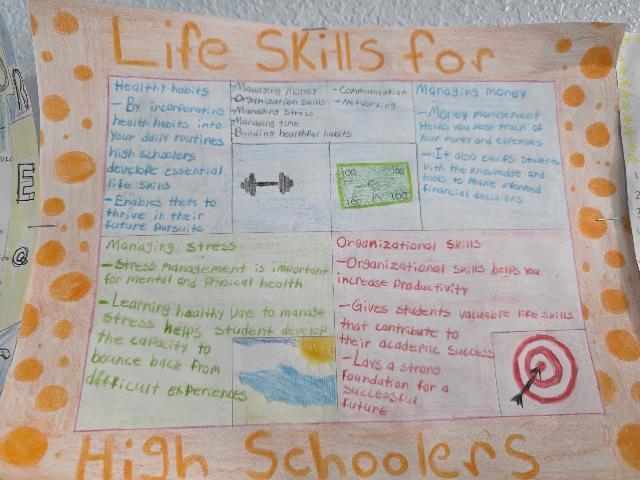 Life Skills for
Healthy habits
- By incorporating
health habits into
your daily routines
high schoolers
develope essential
life skills
- Enables them to
thrive in their
future pursuits
- Managing money
- Organization skills
- Managing stress
- Managing time
- Building healthful habits
- Communication
- Networking
Managing money
- Money management
Helps you keep track of
your money and expenses
- It also equips students
with the knowledge and
tools to make informed
financial decisions
100 100
100 100
Managing stress
- Stress management is important
for mental and physical health
- Learning healthy ways to manage
stress helps student develop
the capacity to
bounce back from
difficult experiences
Organizational skills
- Organizational skills helps you
increase productivity
- Gives students valuable life skills
that contribute to
their academic success
- Lays a strong
foundation for a
successful
future
High Schooler's
E